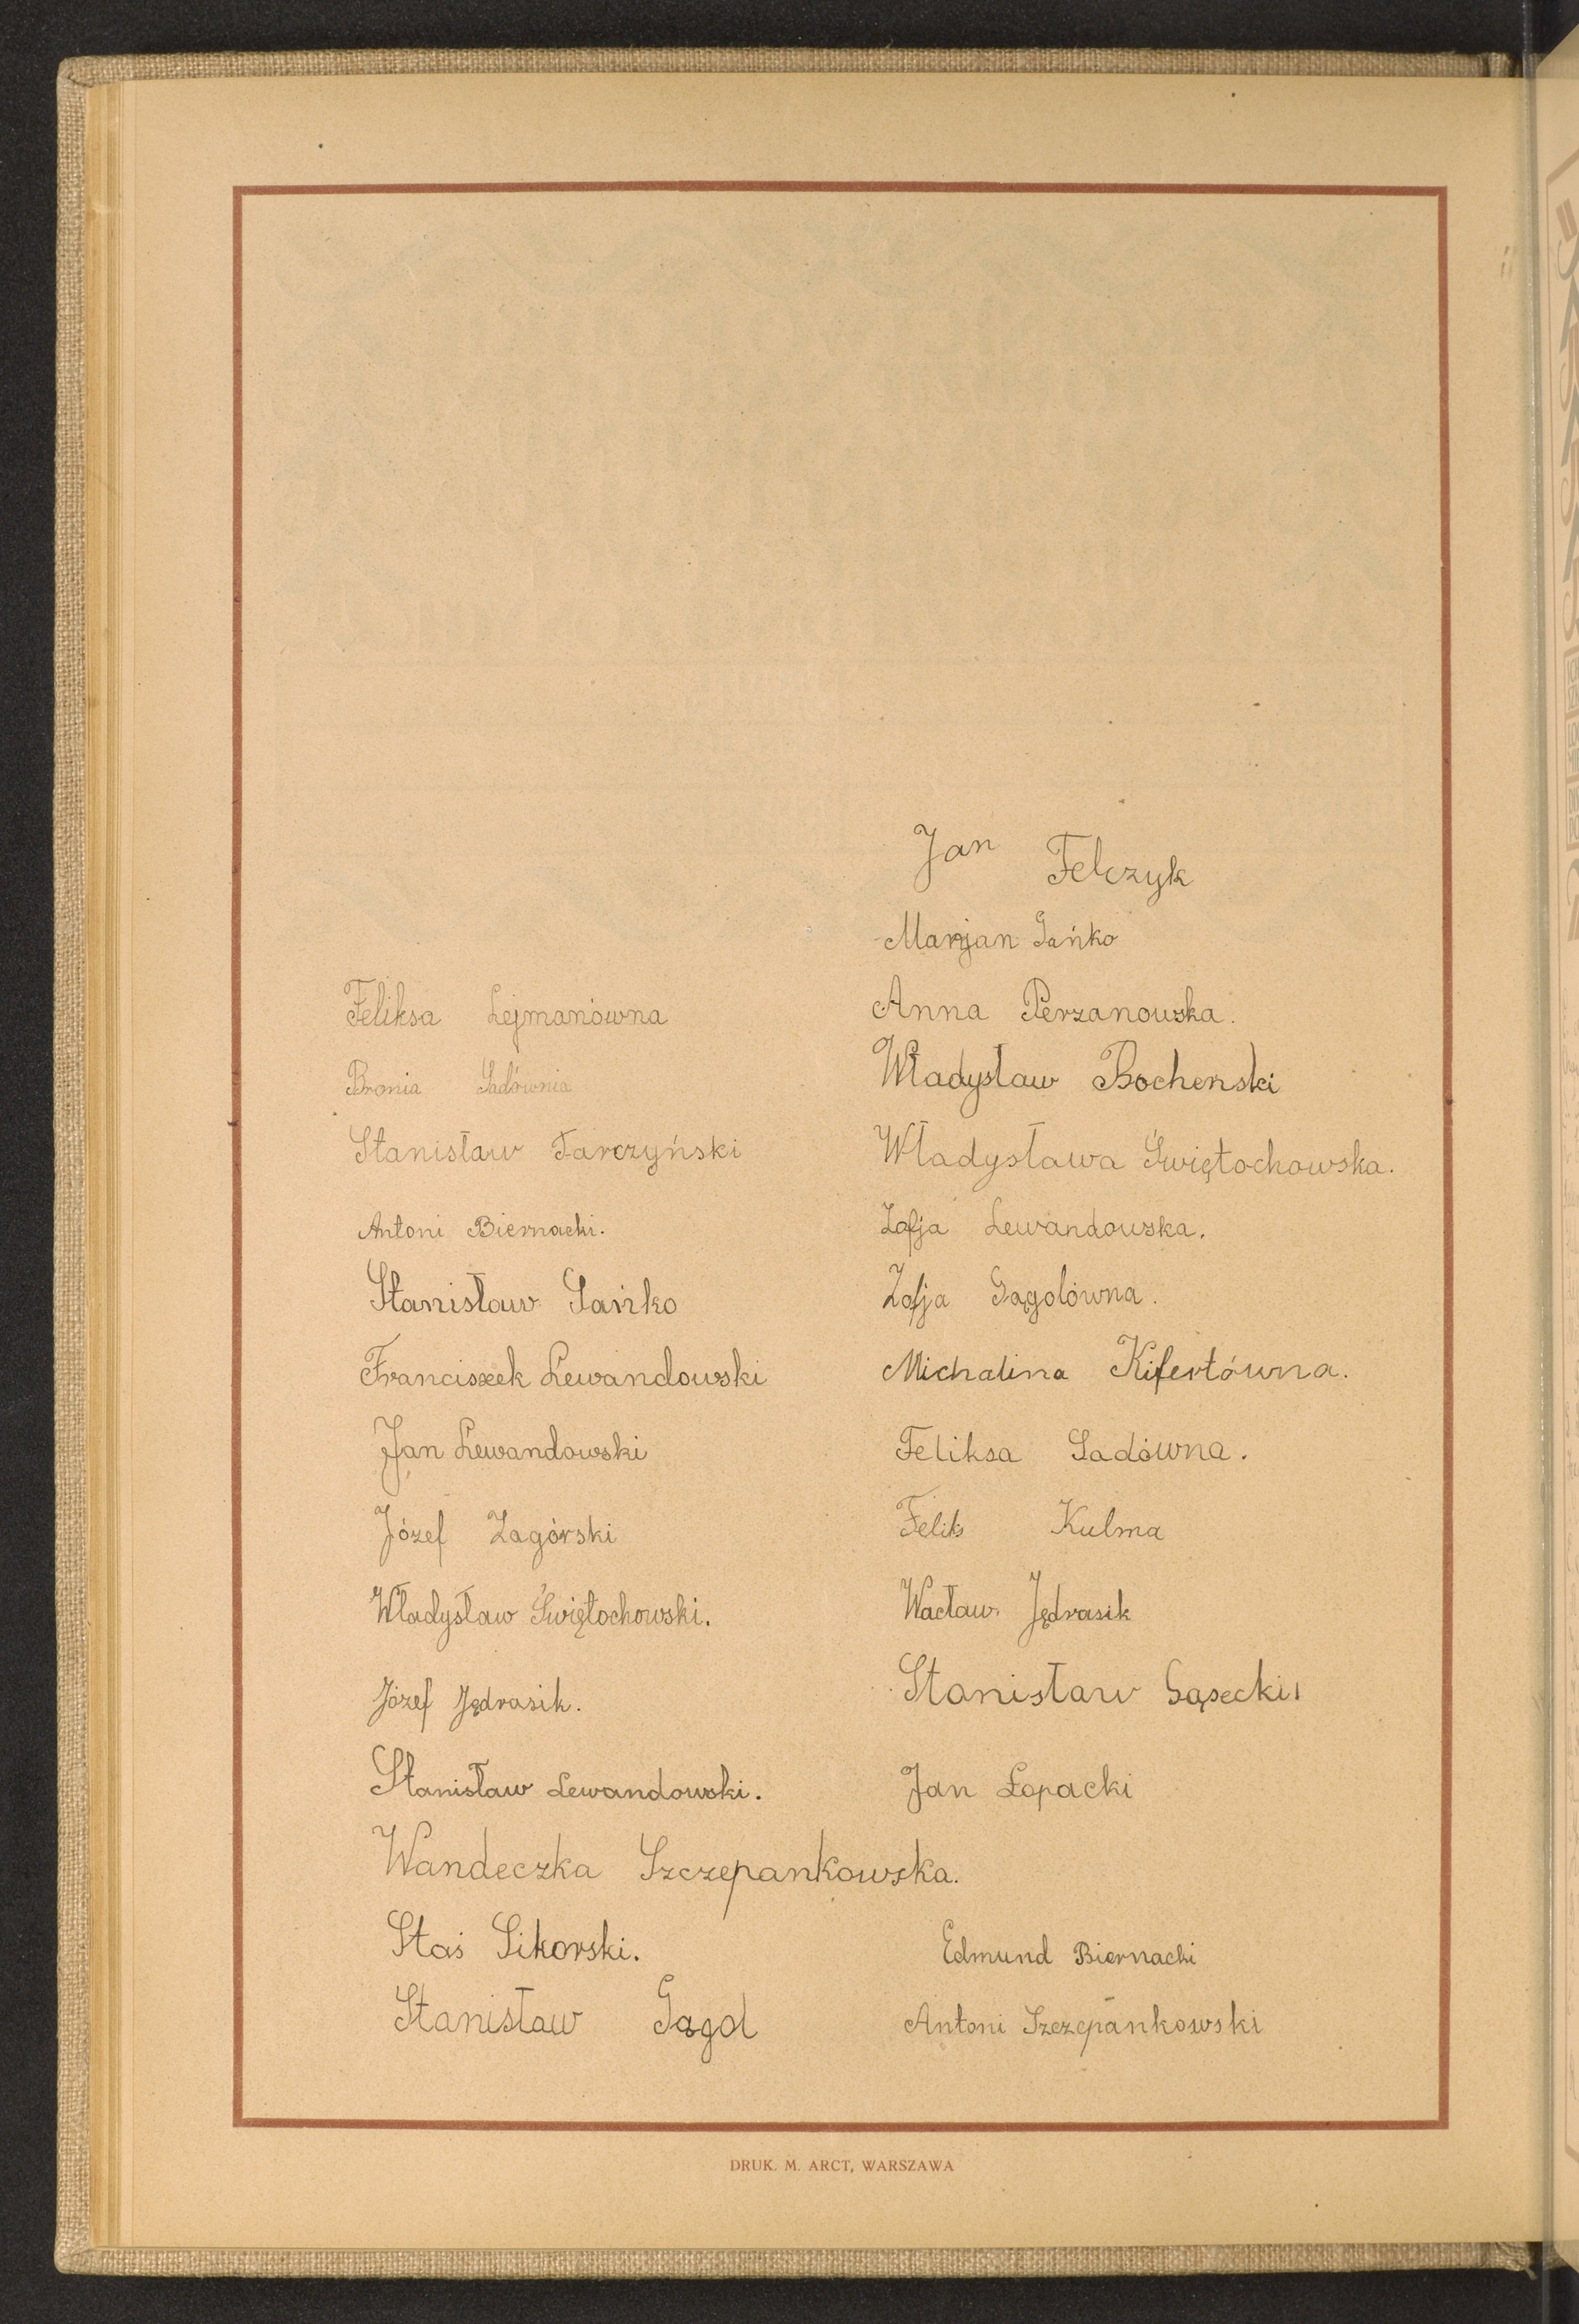 Jan Felczyk
Marjan Gańko
Feliksa Lejmanówna
Anna Perzanowska.
Bronia Sadównia
Władysław Bochenski
Stanisław Tarczyński
Władysława Świętochowska.
Antoni Biernacki.
Zofja Lewandowska.
Stanisław Gańko
Zofja Gągolówna.
Franciszek Lewandowski
Michalina Kifertówna.
Jan Lewandowski
Feliksa Sadówna.
Józef Zagórski
Feliks Kulma
Władysław Świętochowski.
Wacław Jędrasik
Józef Jędrasik.
Stanisław Gąsecki
Stanisław Lewandowski.
Jan Łopacki
Wandeczka Szczepankowska.
Staś Sikorski.
Edmund Biernacki
Stanisław Gągol
Antoni Szczepankowski
DRUK. M. ARCT, WARSZAWA